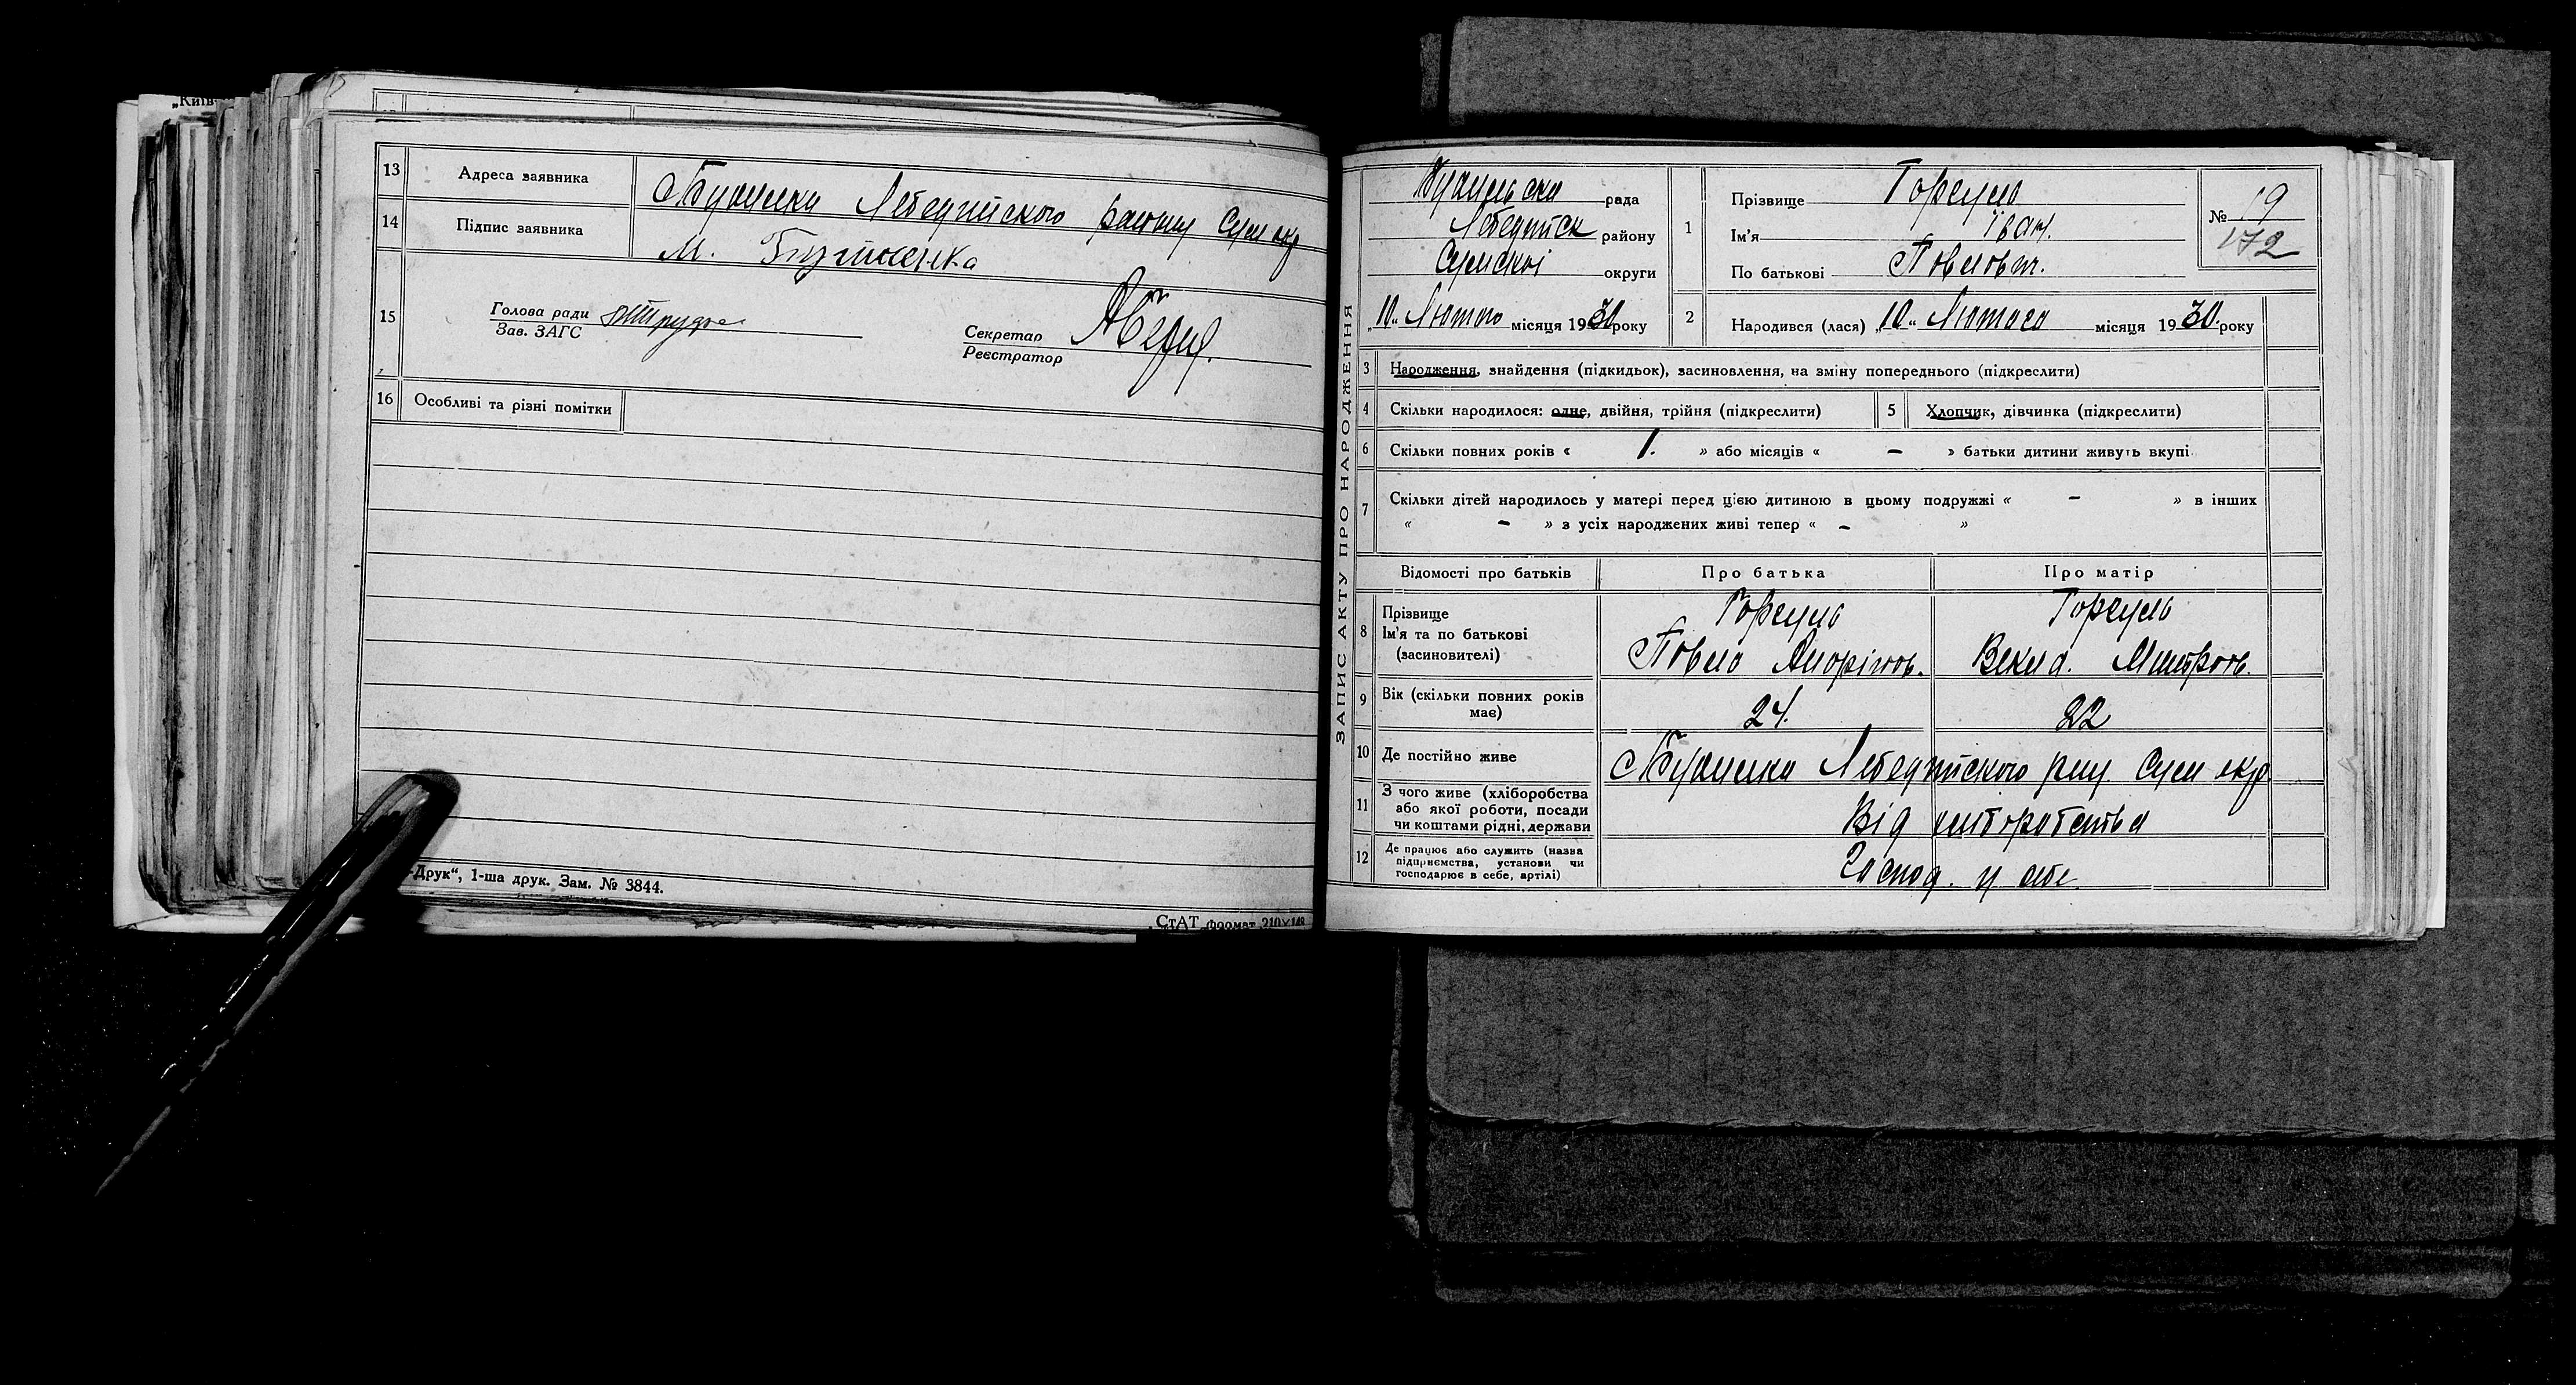 „Київ-
13 Адреса заявника с Будилка Лебединского району Сум окр
14 Підпис заявника М.
15 Голова ради
Зав. ЗАГС
Секретар
Реєстратор
16 Особливі та різні помітки
-Друк“, 1-ша друк. Зам. № 3844.
СтАТ формат 210×148
ЗАПИС АКТУ ПРО НАРОДЖЕННЯ
Будильска рада
Лебединск району
Сумскої округи
„10“ Лютого місяця 1930 року
1 Прізвище
Ім'я Іван.
По батькові Павлович.
№ 19
172
2 Народився (лася) „10“ Лютого місяця 1930 року
3 Народження, знайдення (підкидьок), засиновлення, на зміну попереднього (підкреслити)
4 Скільки народилося: одне, двійня, трійня (підкреслити) 5 Хлопчик, дівчинка (підкреслити)
6 Скільки повних років « 1. » або місяців « — » батьки дитини живуть вкупі
7 Скільки дітей народилось у матері перед цією дитиною в цьому подружжі « — » в інших
« — » з усіх народжених живі тепер « — »
Відомості про батьків Про батька Про матір
8 Прізвище
Ім'я та по батькові
(засиновителі)
Павло
9 Вік (скільки повних років має) 24. 22
10 Де постійно живе с Будилка Лебединского рну Сум окр.
11 З чого живе (хліборобства
або якої роботи, посади
чи коштами рідні, держави
Від
12 Де працює або служить (назва
підприємства, установи чи
господарює в себе, артілі)
Господ. у себе.